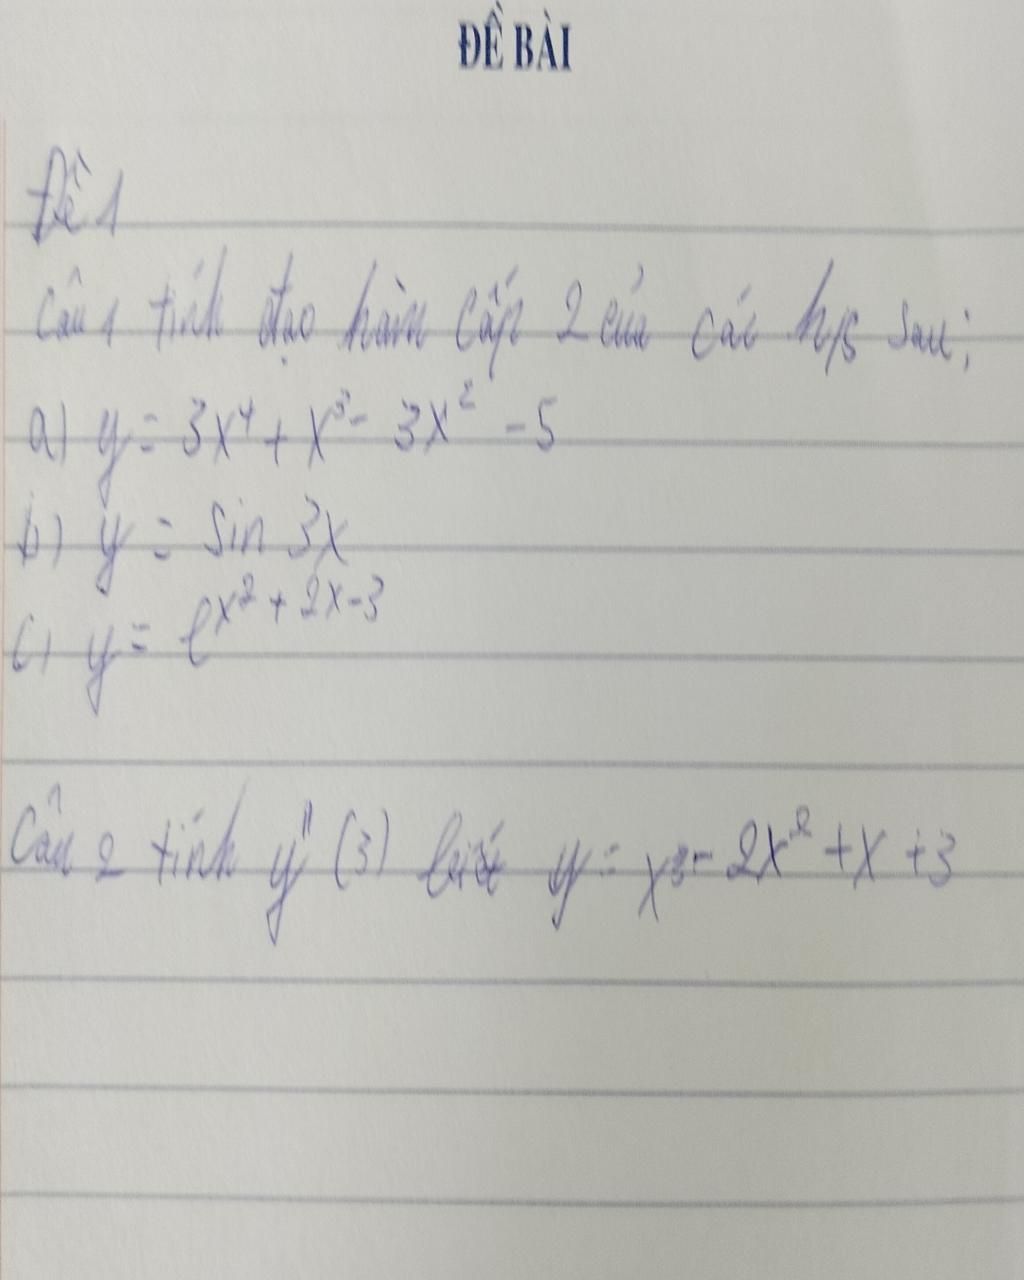 ĐỀ BÀI
Đề 1
Câu 1 tính đạo hàm cấp 2 của các h/s sau:
a) y = 3x⁴ + x³ - 3x² - 5
b) y = sin 3x
c) y = e^x² + 2x - 3
Câu 2 tính y'' (3) biết y = x³ - 2x² + x + 3